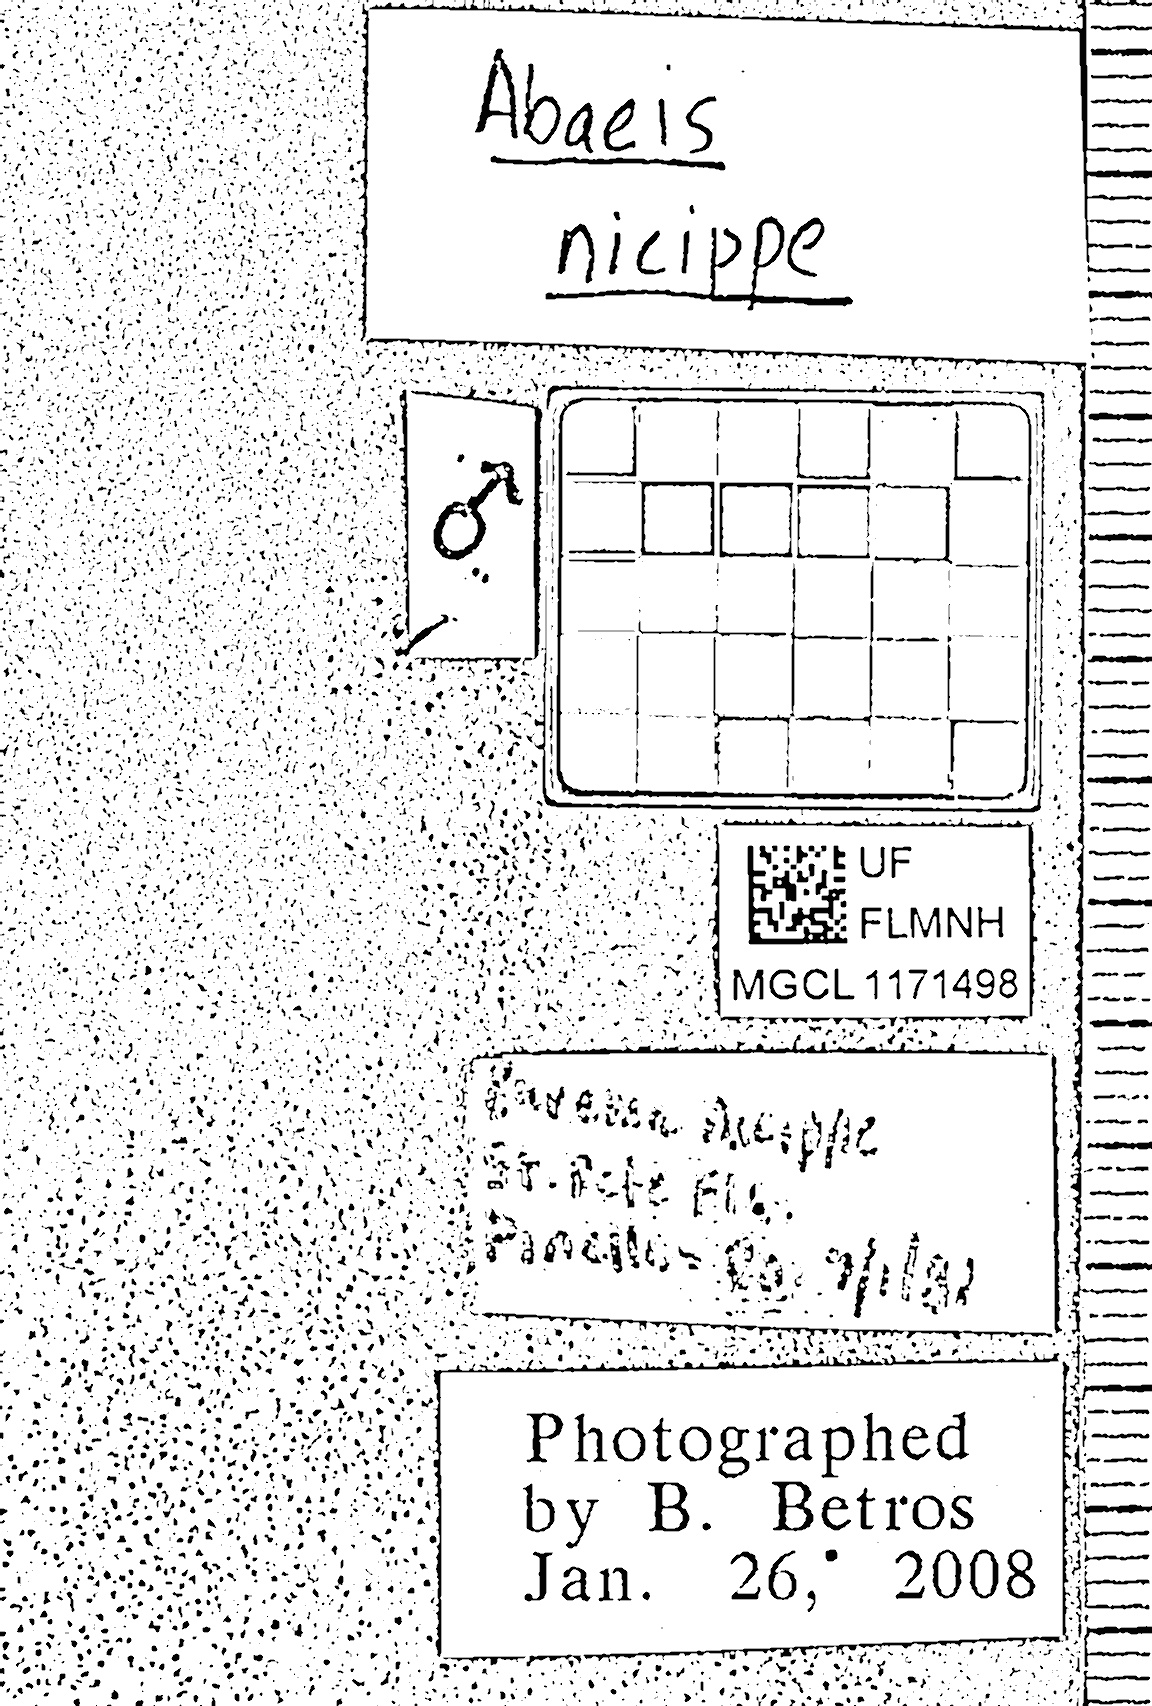 Abaeis
nicippe
♂
UF
FLMNH
MGCL 1171498
Eurema nicippe
St. Pete Fla.
Pinellas Co.
Photographed
by B. Betros
Jan. 26, 2008